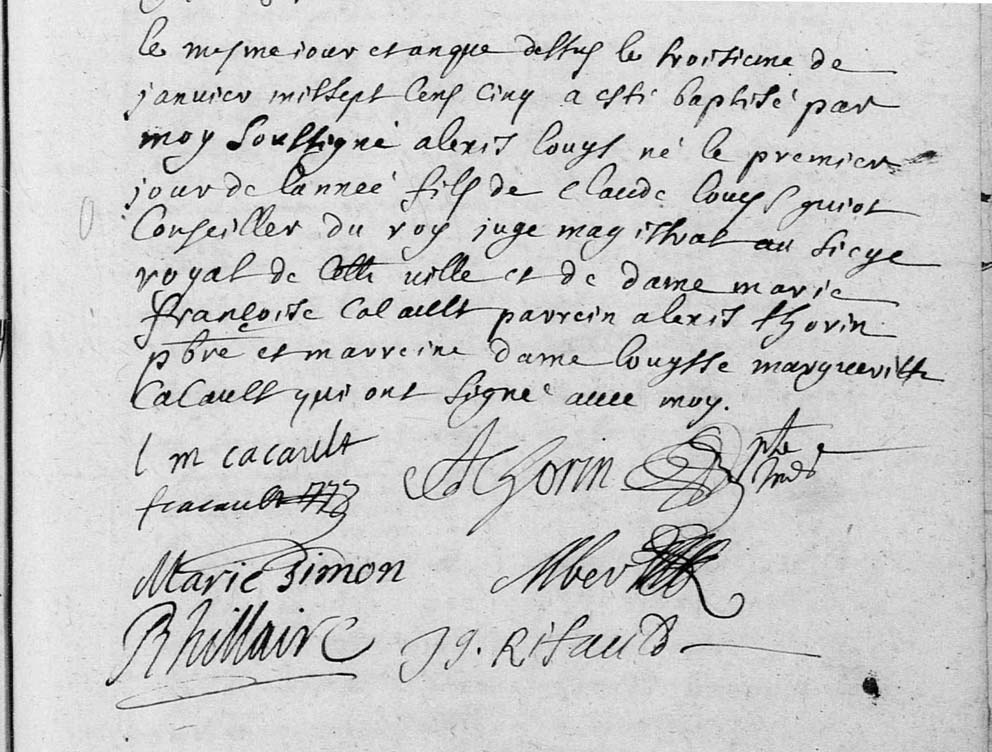 le mesme jour et an que dessus le troisieme de
janvier mil sept cens cinq a esté baptisé par
moy soussigné alexis louys né le premier
jour de lanneé fils de claude louys guiot
Conseiller du roy juge magistrat au siege
royal de cette ville et de dame marie
françoise Cacault parrein alexis thorin
pbre et marreine dame louysse margueritte
Cacault qui ont signé avec moy.
l m cacault
AThorin pbre
fcacault
Marie Simon Albert
Rhillaire J J. Rifauld